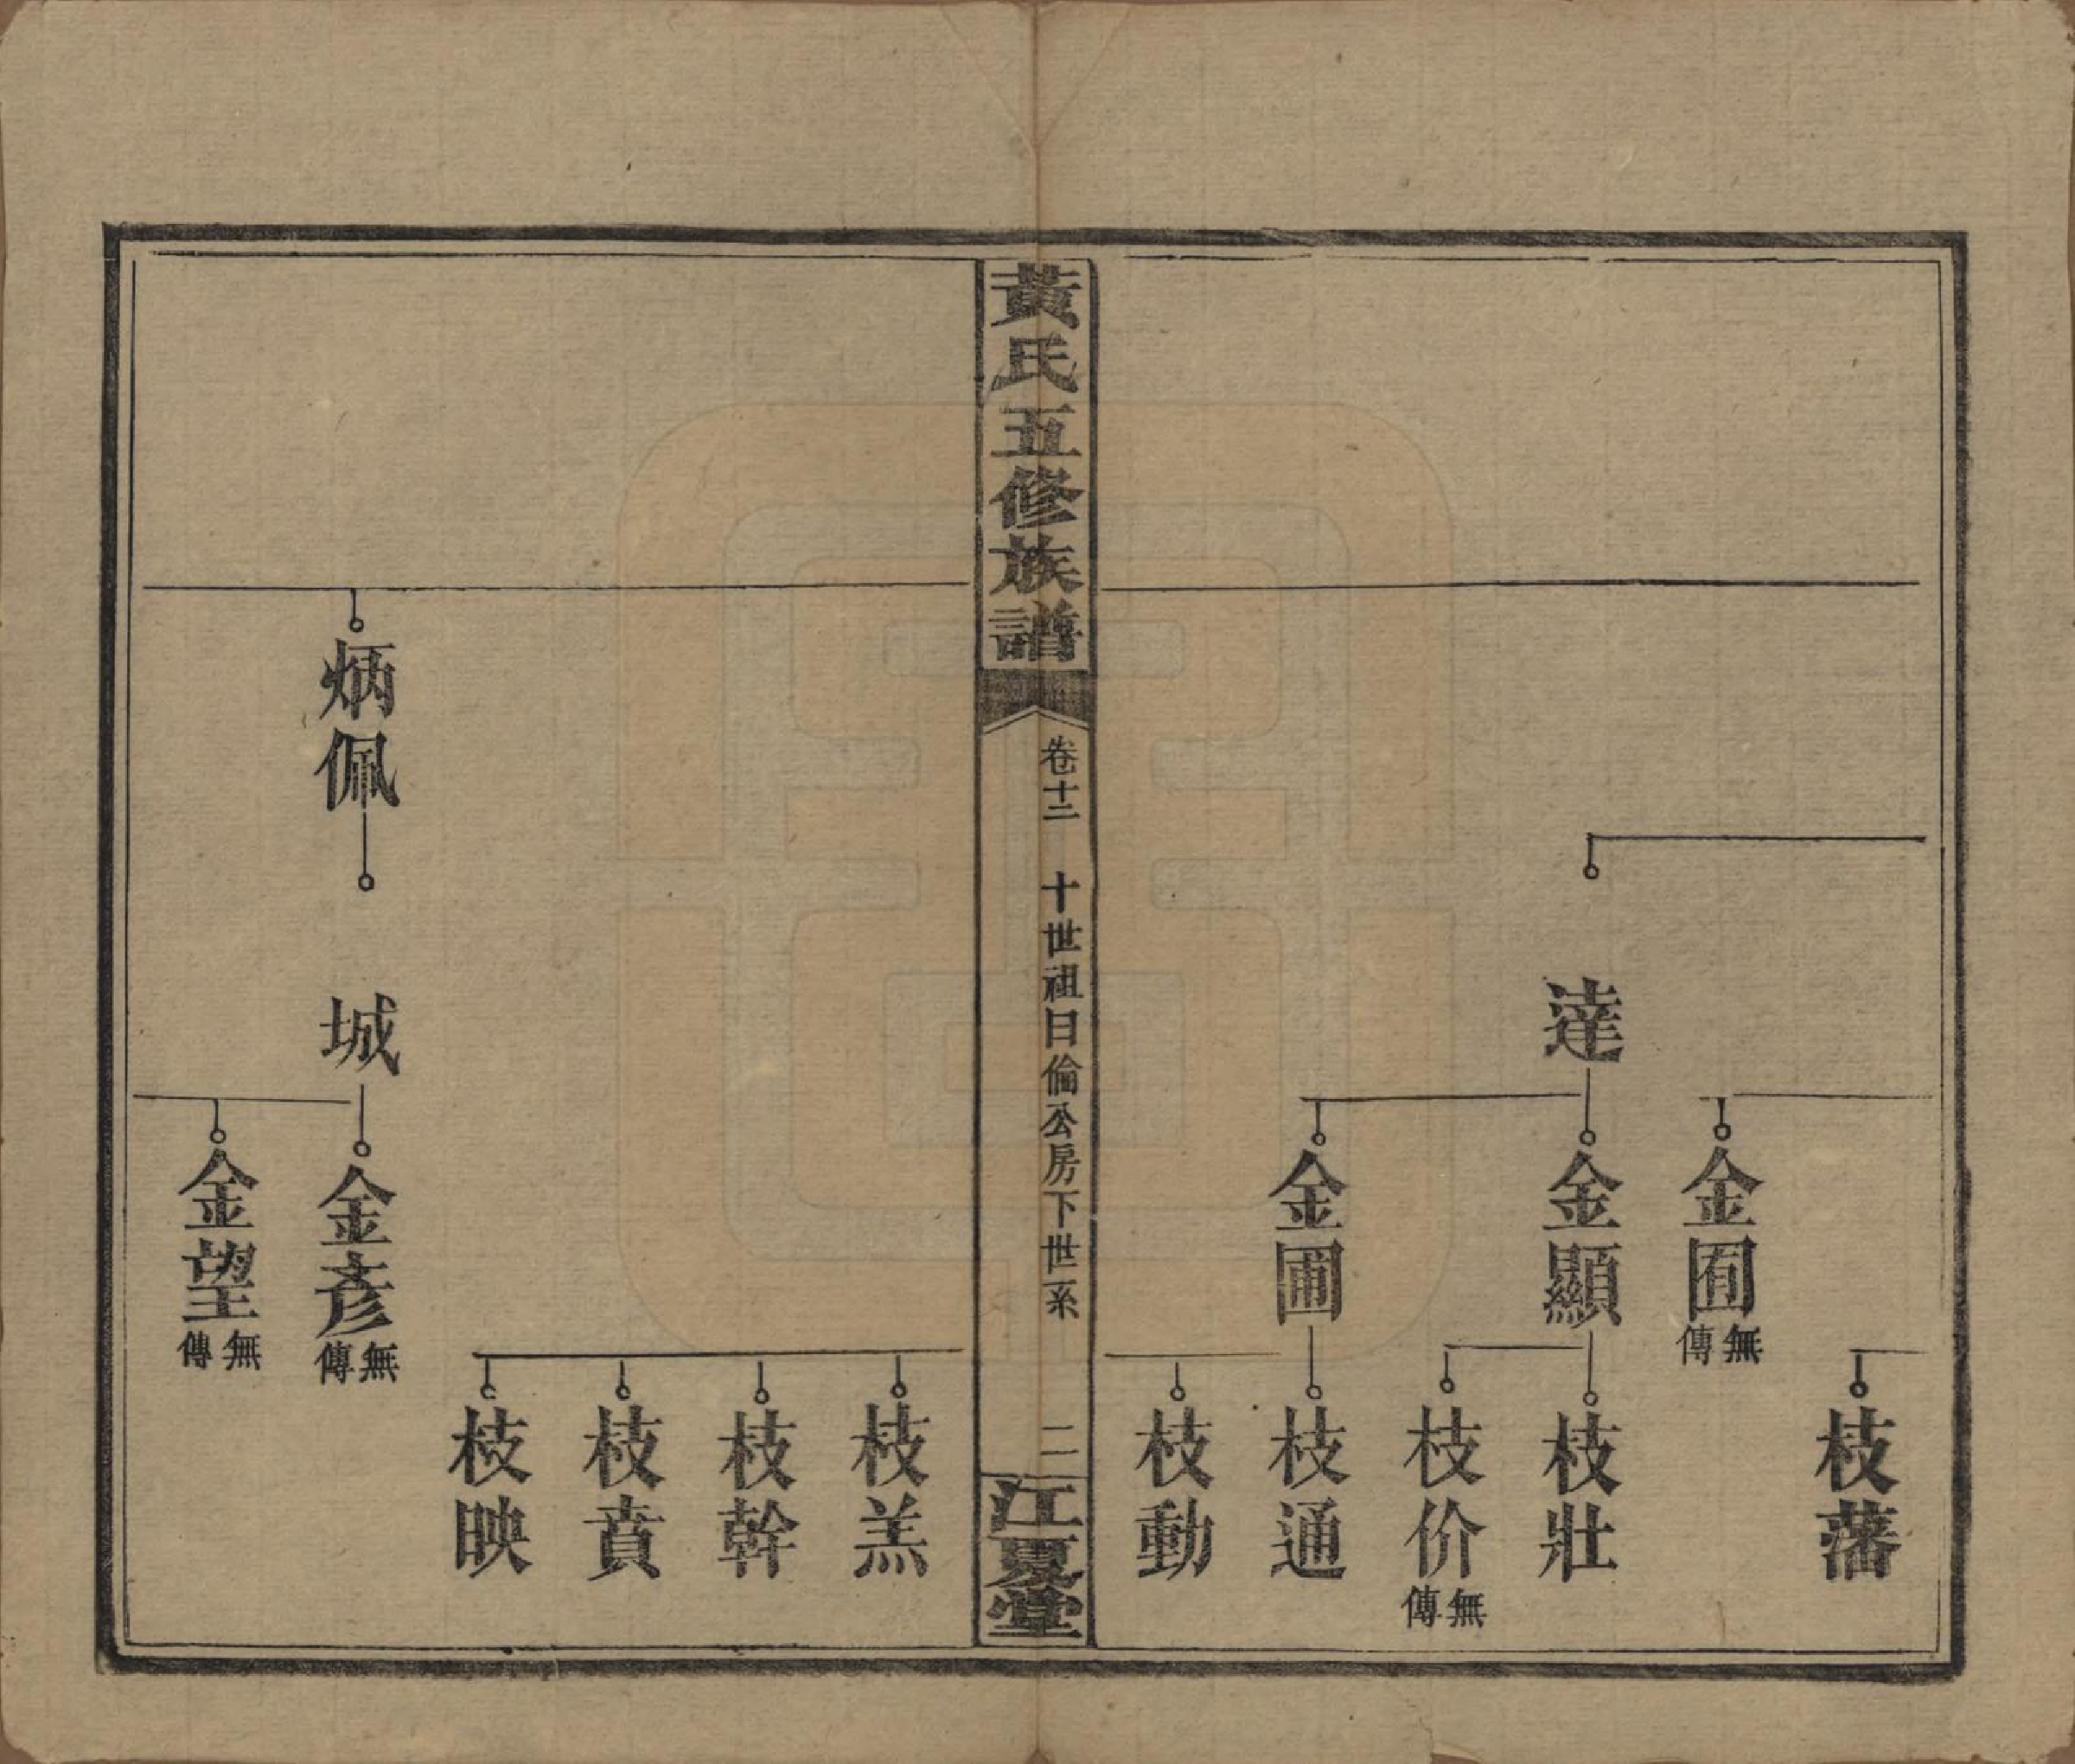 枝藩
金囿
無傳
達
金顯
枝壯
枝价
無傳
金圃
枝通
枝動
黃氏五修族譜
卷十二
十世祖日倫公房下世系
二
江夏堂
枝羔
枝幹
枝賁
枝映
炳佩
城
金彥
無傳
金望
無傳